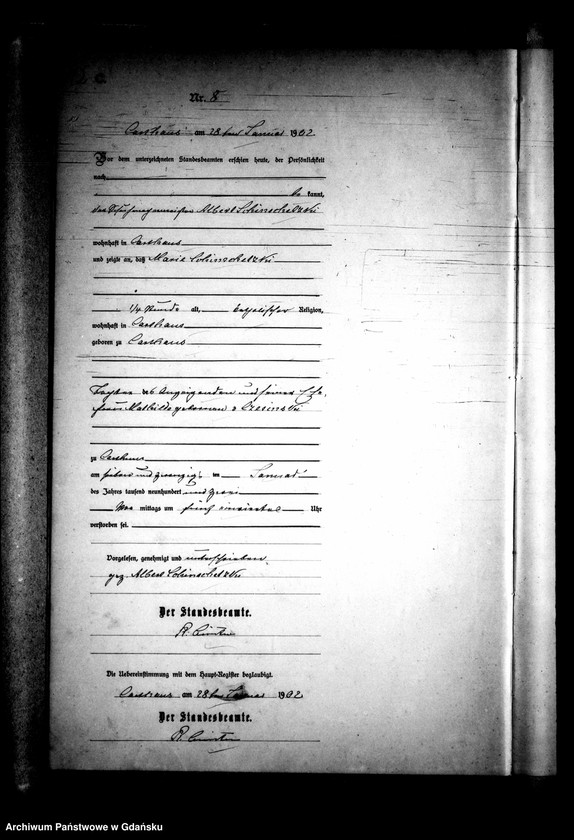 Nr. 8
Carthaus am 28ten Januar 1902
Vor dem unterzeichneten Standesbeamten erschien heute, der Persönlichkeit
nach
be kannt,
der Albert
wohnhaft in Carthaus
und zeigte an, daß Marie
1/4 Stunde alt, katholischer Religion,
wohnhaft in Carthaus
geboren zu Carthaus
Tochter des Anzeigenden und seiner Ehe-
frau Mathilde geborenen
zu Carthaus
am sieben und zwanzig ten Januar
des Jahres tausend neunhundert und zwei
Vor mittags um fünf Uhr
verstorben sei.
Vorgelesen, genehmigt und unterschrieben
gez. Albert
Der Standesbeamte.
R.
Die Uebereinstimmung mit dem Haupt-Register beglaubigt.
Carthaus am 28ten Januar 1902
Der Standesbeamte.
R.
Archiwum Państwowe w Gdańsku